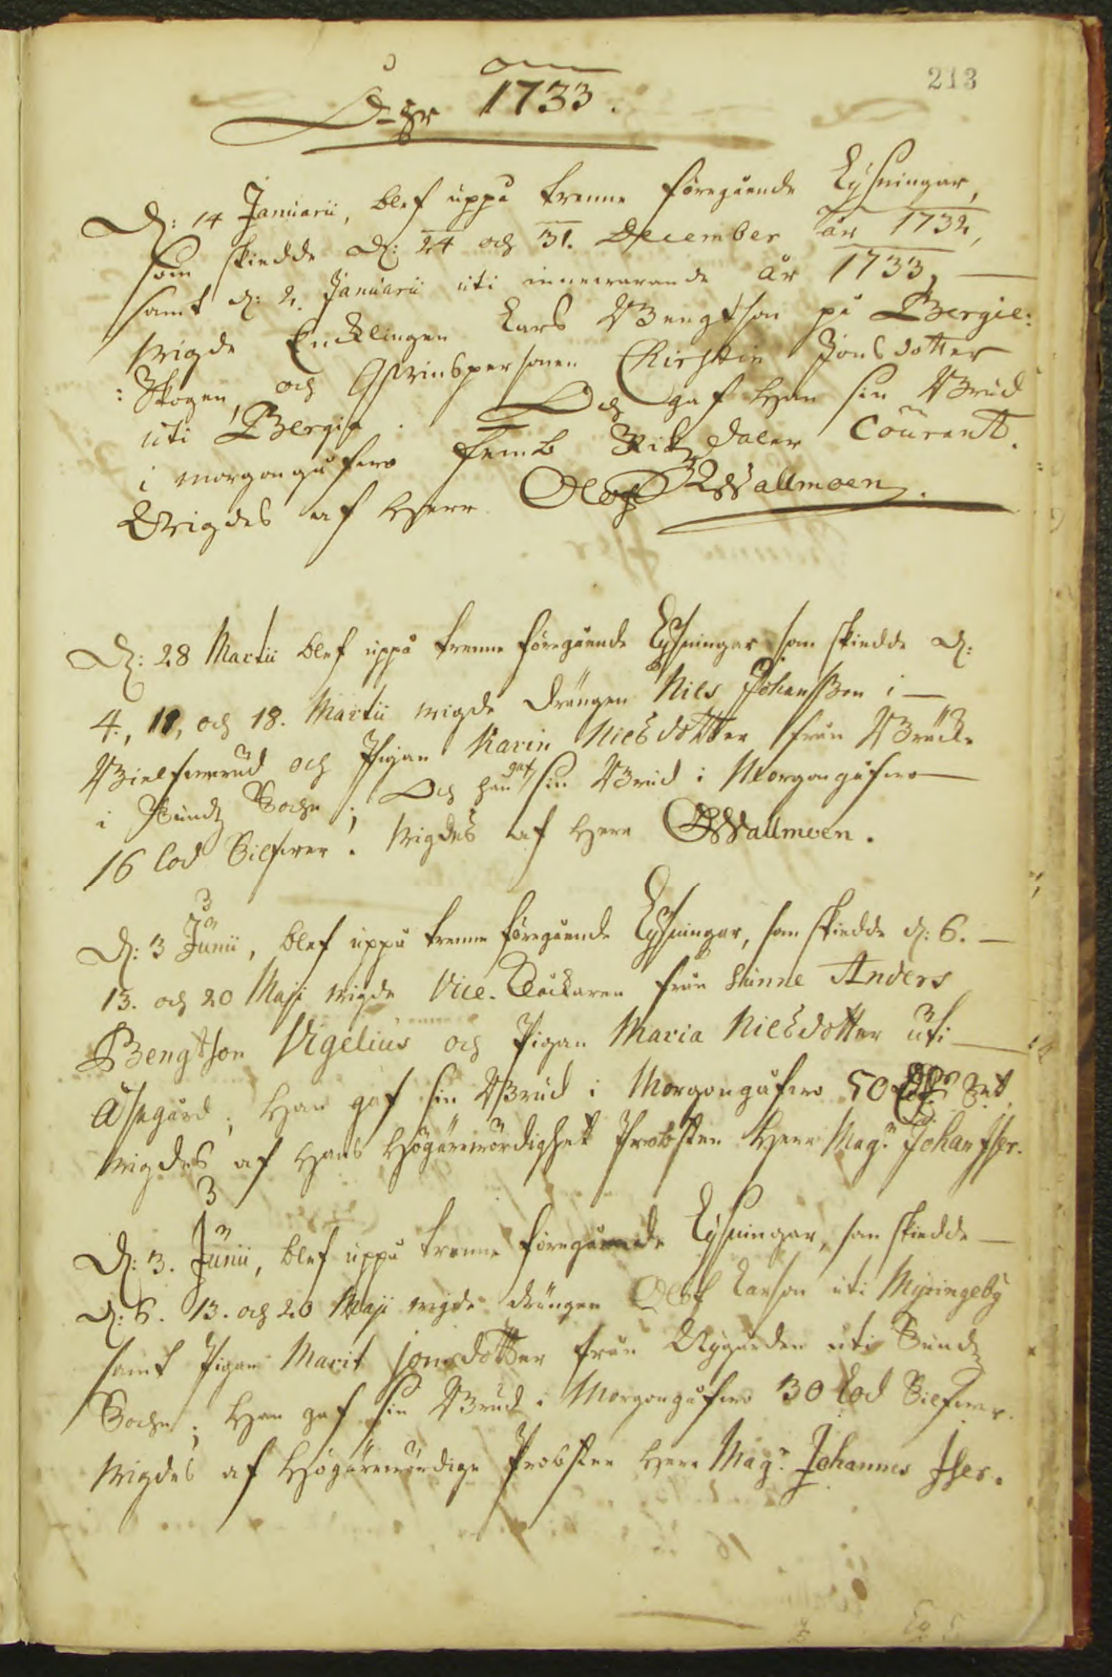 213
Åhr 1733.
D: 14 Januarii, blef uppå trenne föregående Lysningar,
som skiedde D: 24 och 31. December år 1732,
samt d: 2. Januarii uti innewarande år 1733,
wigde Encklingen Lars Bengtson på Bergie:
:Skogen, och Qwinspersonen Christin Jonsdotter
uti Bergie. Och gaf han sin Brud
i morgongåfwo femb Rik daler Courant.
Wigdes af Herr Olof Wallmoen.
D: 28 Martii blef uppå trenne föregående Lysningar som skiedde d:
4., 11, och 18. Martii wigde Drängen Nils Johansson i
och Pigan Karin Nielsdotter från
i Sundz Sochn; Och han gaf sin Brud i Morgongåfwo
16 lod Silfwer. Wigdes af Herr O Wallmoen.
D: 3 Junii, blef uppå trenne föregående Lysningar, som skiedde d: 6.
13. och 20 Maji wigde Vice-Clåckaren från Anders
Bengtson Vigelius och Pigan Maria Nielsdotter uti
Åsegård; Han gaf sin Brud i Morgongåfwo 50
wigdes af Hans Högärewördighet Probsten Herr Magr Johan Iser.
D: 3. Junii, blef uppå trenne föregående Lysningar, som skiedde
d: 6. 13. och 20 Maji wigde drängen Olof Larson uti Myringeby
samt Pigan Marit Jonsdotter från Nygården uti Sundz
Sochn; Han gaf sin Brud i Morgongåfwo 30 Lod Silfwer.
Wigdes af Högärewördige Probsten Herr Magr Johannes Iser.